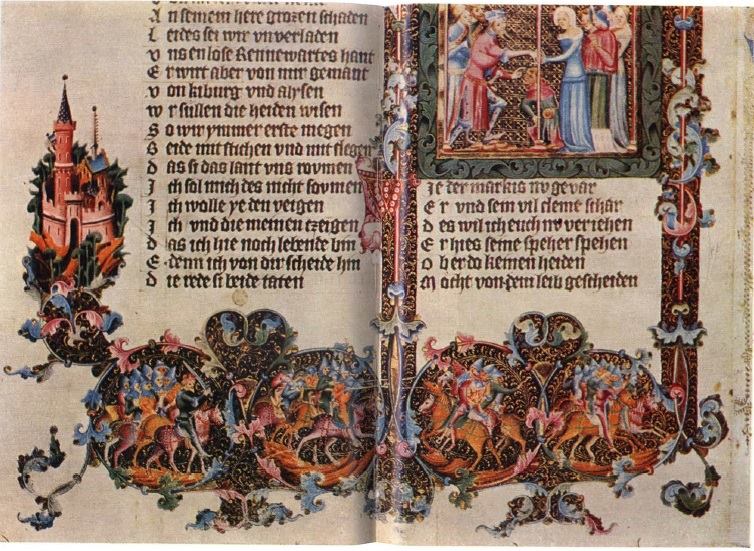 An seinem here grozen schaden
Leides sei wir vnverladen
vns en lose Rennewartes hant
Er wirt aber von mir gemant
von kiburg vnd alysen
wir sullen die heiden wisen
So wir ymmer erste megen
Beide mit stichen vnd mit slegen
das si das lant vns roymen
Ich sol mich des nicht soymen
Ich wolle ye den veigen
Ich vnd die meinen erzeigen
das ich hie noch lebende bin
E denn ich von dir scheide hin
die rede si beide taten
Ie der markis nv gevar
Er vnd sein vil cleine schar
des wil ich euch nv veriehen
Er hies seine speher spehen
Ober do kemen heiden
Mocht von dem leib gescheiden